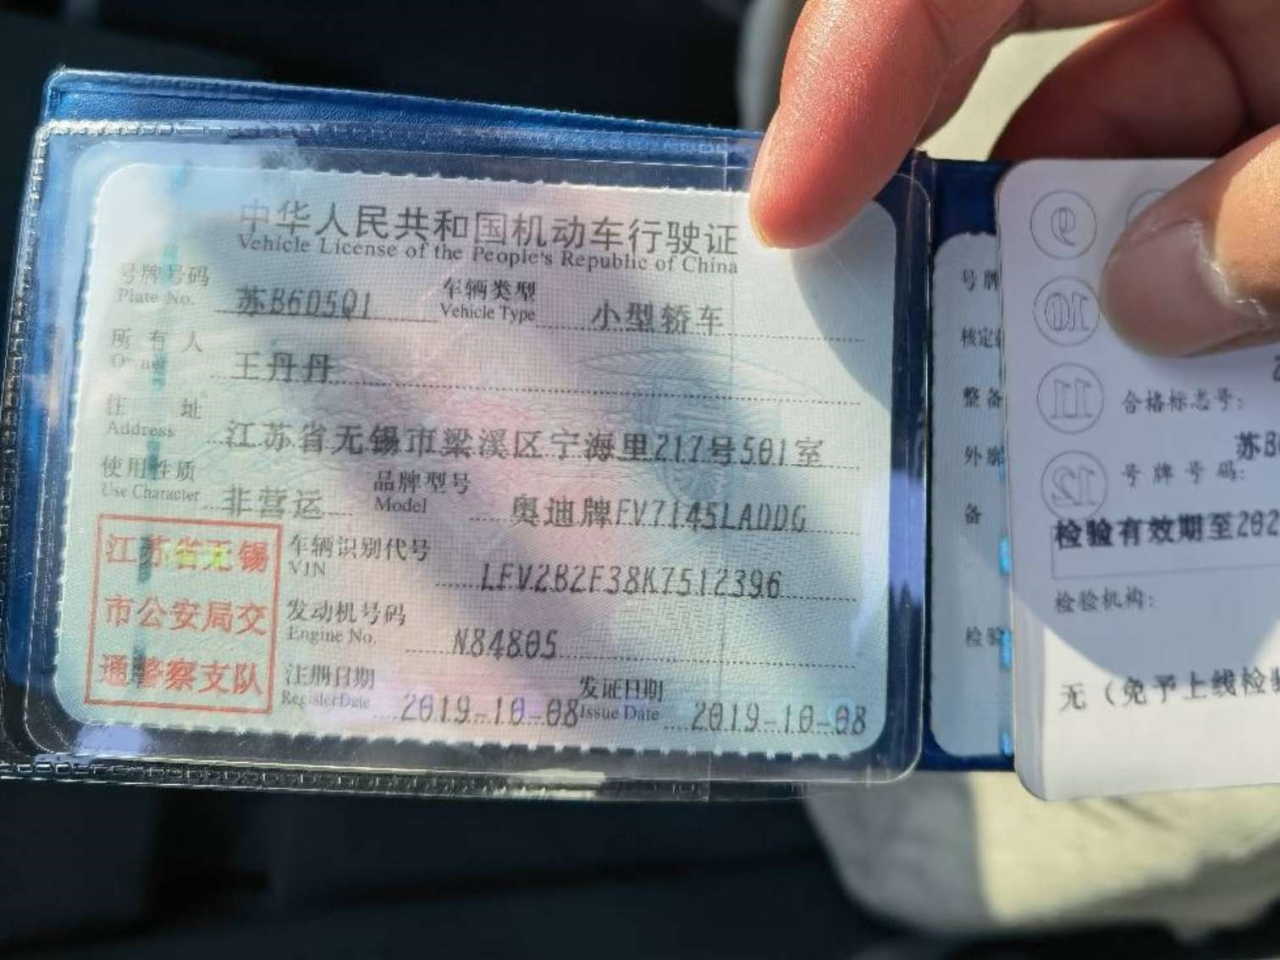 中华人民共和国机动车行驶证
Vehicle License of the People's Republic of China
号牌号码 苏B6D5Q1 车辆类型 小型轿车
Plate No. Vehicle Type
所有人 王丹丹
Owner
住址 江苏省无锡市梁溪区宁海里217号501室
Address
使用性质 非营运 品牌型号 奥迪牌FV7145LADDG
Use Character Model
江苏省无锡
市公安局交
通警察支队
车辆识别代号 LFV2B2F38K7512396
VIN
发动机号码 N84805
Engine No.
注册日期 2019-10-08 发证日期 2019-10-08
Register Date Issue Date
号牌
核定
整备
外廓
备
检验
9
10
11
12
合格标志号:
苏B
号牌号码:
检验有效期至202
检验机构:
无(免予上线检验